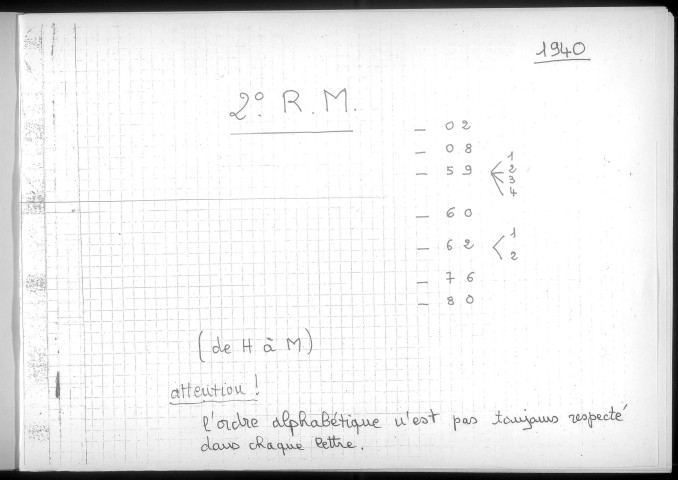 1940
2º. R. M.
— 02
— 08
— 59 < 1
2
3
4
— 60
— 62 < 1
2
— 76
— 80
(de H à M)
attention !
l'ordre alphabétique n'est pas toujours respecté
dans chaque lettre.